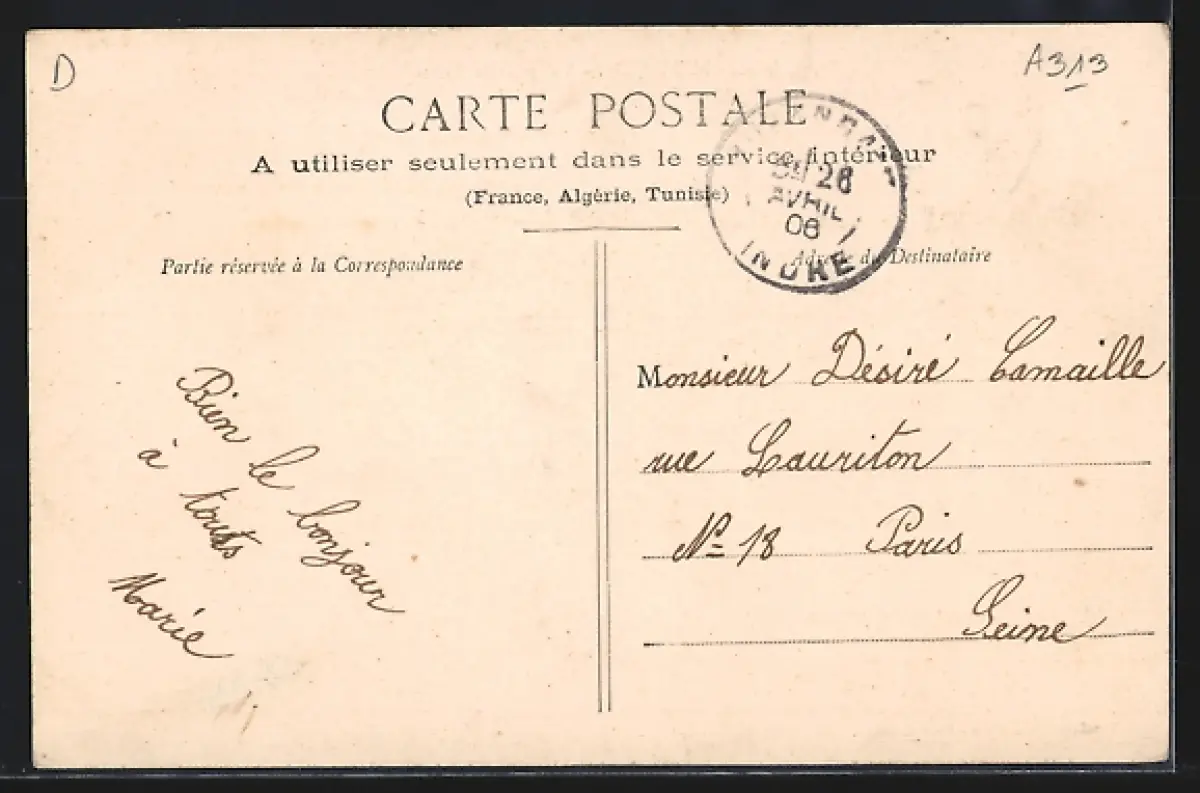 D
A313
CARTE POSTALE
A utiliser seulement dans le service intérieur
(France, Algérie, Tunisie)
26
AVRIL
08
INDRE
Partie réservée à la Correspondance
Adresse du Destinataire
Bien le bonjour
à touts
Marie
Monsieur Désiré Camaille
rue Lauriton
Nº 18 Paris
Seine